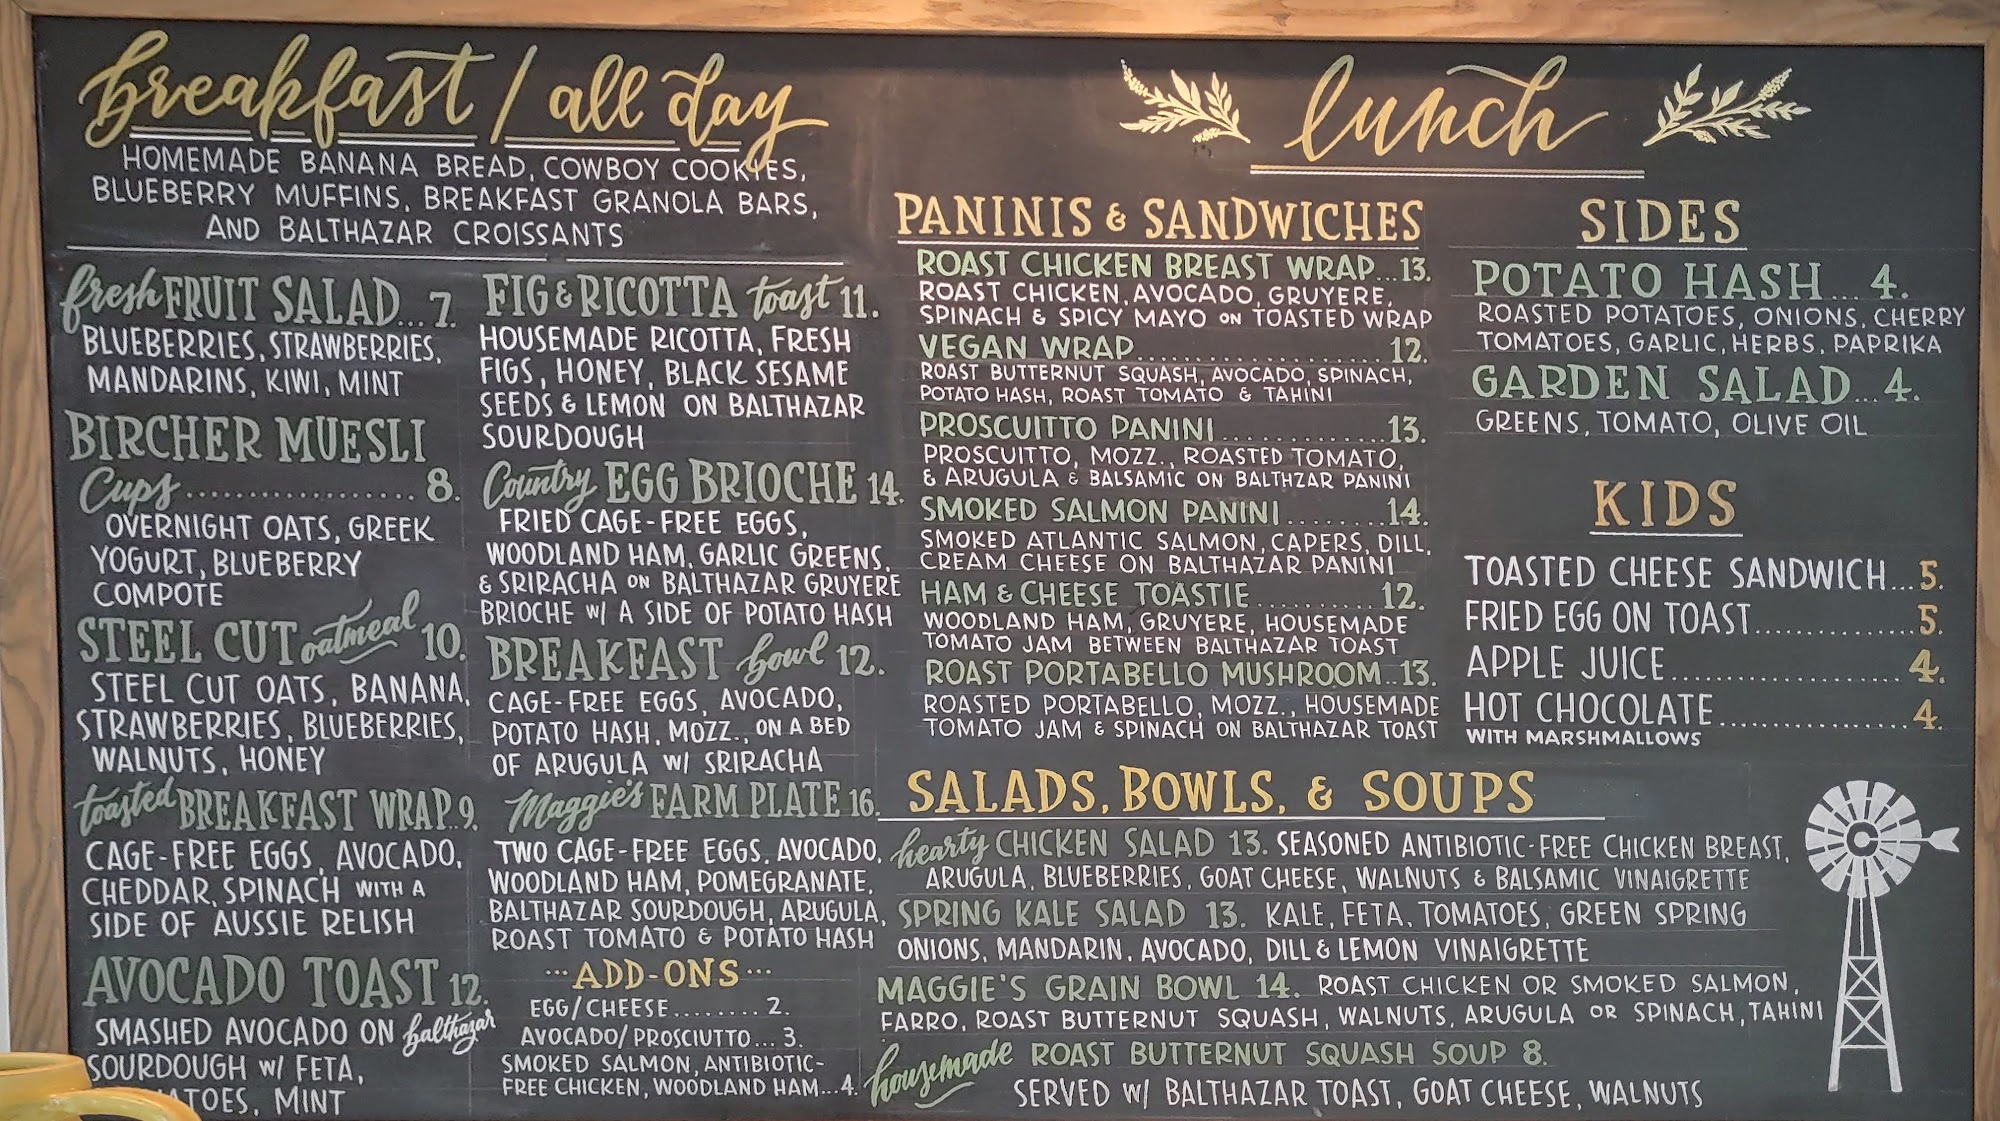 breakfast / all day
HOMEMADE BANANA BREAD, COWBOY COOKIES,
BLUEBERRY MUFFINS, BREAKFAST GRANOLA BARS,
AND BALTHAZAR CROISSANTS
fresh FRUIT SALAD... 7.
BLUEBERRIES, STRAWBERRIES,
MANDARINS, KIWI, MINT
BIRCHER MUESLI
Cups.................. 8.
OVERNIGHT OATS, GREEK
YOGURT, BLUEBERRY
COMPOTE
STEEL CUT oatmeal 10.
STEEL CUT OATS, BANANA,
STRAWBERRIES, BLUEBERRIES,
WALNUTS, HONEY
toasted BREAKFAST WRAP..9.
CAGE-FREE EGGS, AVOCADO,
CHEDDAR, SPINACH WITH A
SIDE OF AUSSIE RELISH
AVOCADO TOAST 12.
SMASHED AVOCADO ON balthazar
SOURDOUGH W/ FETA,
TOES, MINT
FIG & RICOTTA toast 11.
HOUSEMADE RICOTTA, FRESH
FIGS, HONEY, BLACK SESAME
SEEDS & LEMON ON BALTHAZAR
SOURDOUGH
Country EGG BRIOCHE 14.
FRIED CAGE-FREE EGGS,
WOODLAND HAM, GARLIC GREENS,
& SRIRACHA ON BALTHAZAR GRUYERE
BRIOCHE W/ A SIDE OF POTATO HASH
BREAKFAST bowl 12.
CAGE-FREE EGGS, AVOCADO,
POTATO HASH, MOZZ., ON A BED
OF ARUGULA W/ SRIRACHA
Maggie's FARM PLATE 16.
TWO CAGE-FREE EGGS, AVOCADO,
WOODLAND HAM, POMEGRANATE,
BALTHAZAR SOURDOUGH, ARUGULA,
ROAST TOMATO & POTATO HASH
...ADD-ONS...
EGG/CHEESE........ 2.
AVOCADO/PROSCIUTTO... 3.
SMOKED SALMON, ANTIBIOTIC-
FREE CHICKEN, WOODLAND HAM...4.
lunch
PANINIS & SANDWICHES
ROAST CHICKEN BREAST WRAP...13.
ROAST CHICKEN, AVOCADO, GRUYERE,
SPINACH & SPICY MAYO ON TOASTED WRAP
VEGAN WRAP..................... 12.
ROAST BUTTERNUT SQUASH, AVOCADO, SPINACH,
POTATO HASH, ROAST TOMATO & TAHINI
PROSCUITTO PANINI.............13.
PROSCUITTO, MOZZ., ROASTED TOMATO,
& ARUGULA & BALSAMIC ON BALTHZAR PANINI
SMOKED SALMON PANINI........14.
SMOKED ATLANTIC SALMON, CAPERS, DILL,
CREAM CHEESE ON BALTHAZAR PANINI
HAM & CHEESE TOASTIE..........12.
WOODLAND HAM, GRUYERE, HOUSEMADE
TOMATO JAM BETWEEN BALTHAZAR TOAST
ROAST PORTABELLO MUSHROOM..13.
ROASTED PORTABELLO, MOZZ., HOUSEMADE
TOMATO JAM & SPINACH ON BALTHAZAR TOAST
SIDES
POTATO HASH... 4.
ROASTED POTATOES, ONIONS, CHERRY
TOMATOES, GARLIC, HERBS, PAPRIKA
GARDEN SALAD...4.
GREENS, TOMATO, OLIVE OIL
KIDS
TOASTED CHEESE SANDWICH...5.
FRIED EGG ON TOAST..............5.
APPLE JUICE....................4.
HOT CHOCOLATE................4.
WITH MARSHMALLOWS
SALADS, BOWLS, & SOUPS
hearty CHICKEN SALAD 13. SEASONED ANTIBIOTIC-FREE CHICKEN BREAST,
ARUGULA, BLUEBERRIES, GOAT CHEESE, WALNUTS & BALSAMIC VINAIGRETTE
SPRING KALE SALAD 13. KALE, FETA, TOMATOES, GREEN SPRING
ONIONS, MANDARIN, AVOCADO, DILL & LEMON VINAIGRETTE
MAGGIE'S GRAIN BOWL 14. ROAST CHICKEN OR SMOKED SALMON,
FARRO, ROAST BUTTERNUT SQUASH, WALNUTS, ARUGULA OR SPINACH, TAHINI
housemade ROAST BUTTERNUT SQUASH SOUP 8.
SERVED W/ BALTHAZAR TOAST, GOAT CHEESE, WALNUTS